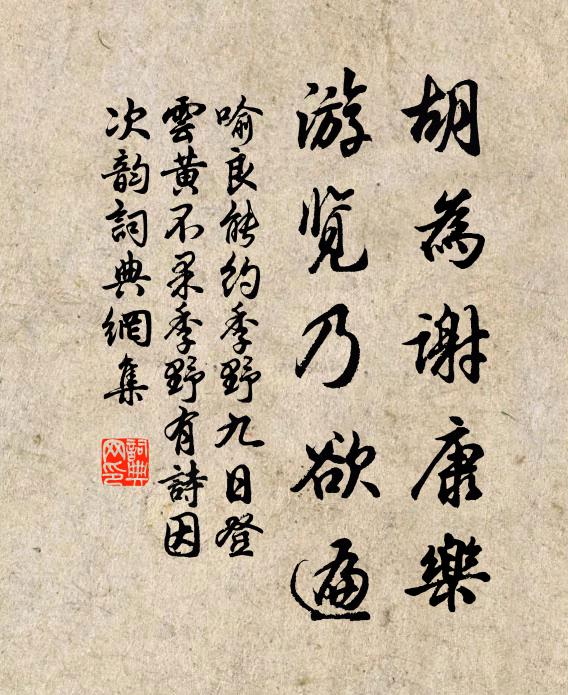 胡為謝康樂
游览乃欲遍
喻良能约季野九日登
雲黄不果季野有詩因
次韵詞典網集
詞典网印